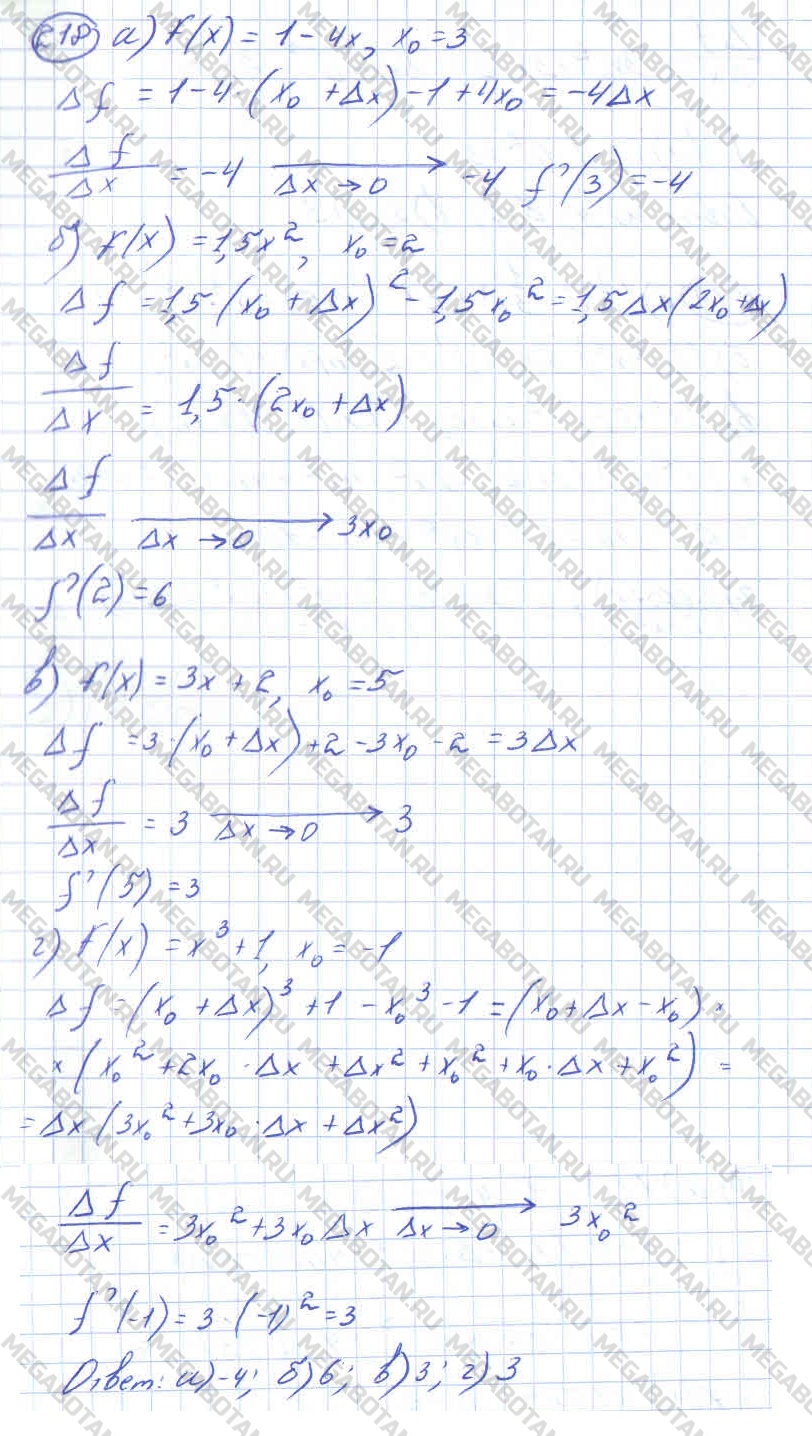 218 а) f(x) = 1 - 4x, x₀ = 3
Δf = 1 - 4·(x₀ + Δx) - 1 + 4x₀ = -4Δx
Δf/Δx = -4 →(Δx → 0) -4 f'(3) = -4
б) f(x) = 1,5x², x₀ = 2
Δf = 1,5·(x₀ + Δx)² - 1,5x₀² = 1,5Δx(2x₀ + Δx)
Δf/Δx = 1,5·(2x₀ + Δx)
Δf/Δx →(Δx → 0) 3x₀
f'(2) = 6
в) f(x) = 3x + 2, x₀ = 5
Δf = 3·(x₀ + Δx) + 2 - 3x₀ - 2 = 3Δx
Δf/Δx = 3 →(Δx → 0) 3
f'(5) = 3
г) f(x) = x³ + 1, x₀ = -1
Δf = (x₀ + Δx)³ + 1 - x₀³ - 1 = (x₀ + Δx - x₀) ×
× (x₀² + 2x₀·Δx + Δx² + x₀² + x₀·Δx + x₀²) =
= Δx(3x₀² + 3x₀·Δx + Δx²)
Δf/Δx = 3x₀² + 3x₀Δx →(Δx → 0) 3x₀²
f'(-1) = 3·(-1)² = 3
Ответ: а) -4; б) 6; в) 3; г) 3
MEGABOTAN.RU